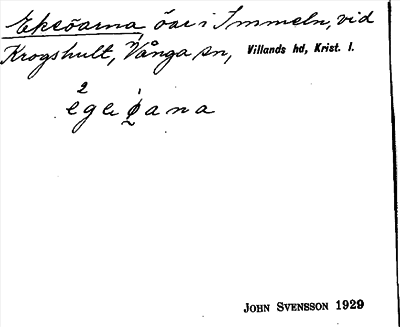 Ekeöarna, öar i Immeln, vid
Krogshult, Vånga sn, Villands hd, Krist. l.
JOHN SVENSSON 1929